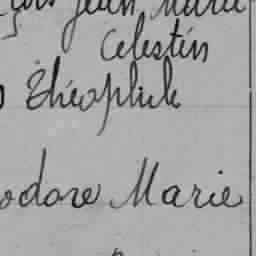 çois Jean Marie
Celestin
Théophile
odore Marie